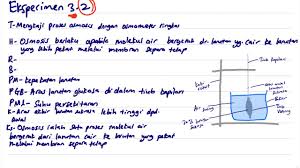 Eksperimen 3.2
T- Mengkaji proses osmosis dengan osmometer ringkas
H- Osmosis berlaku apabila molekul air bergerak dr. larutan yg cair ke larutan
yang lebih pekat melalui membran separa telap
R-
B-
PM- kepekatan larutan
PGB- Aras larutan glukosa di dalam tiub kapilari
PM2- Suhu persekitaran
K- Aras akhir larutan sukrosa lebih tinggi dpd.
awal
Ks- Osmosis ialah satu proses molekul air
bergerak dari larutan cair ke larutan yang pekat
melalui membran separa telap
Tiub kapilari
Air